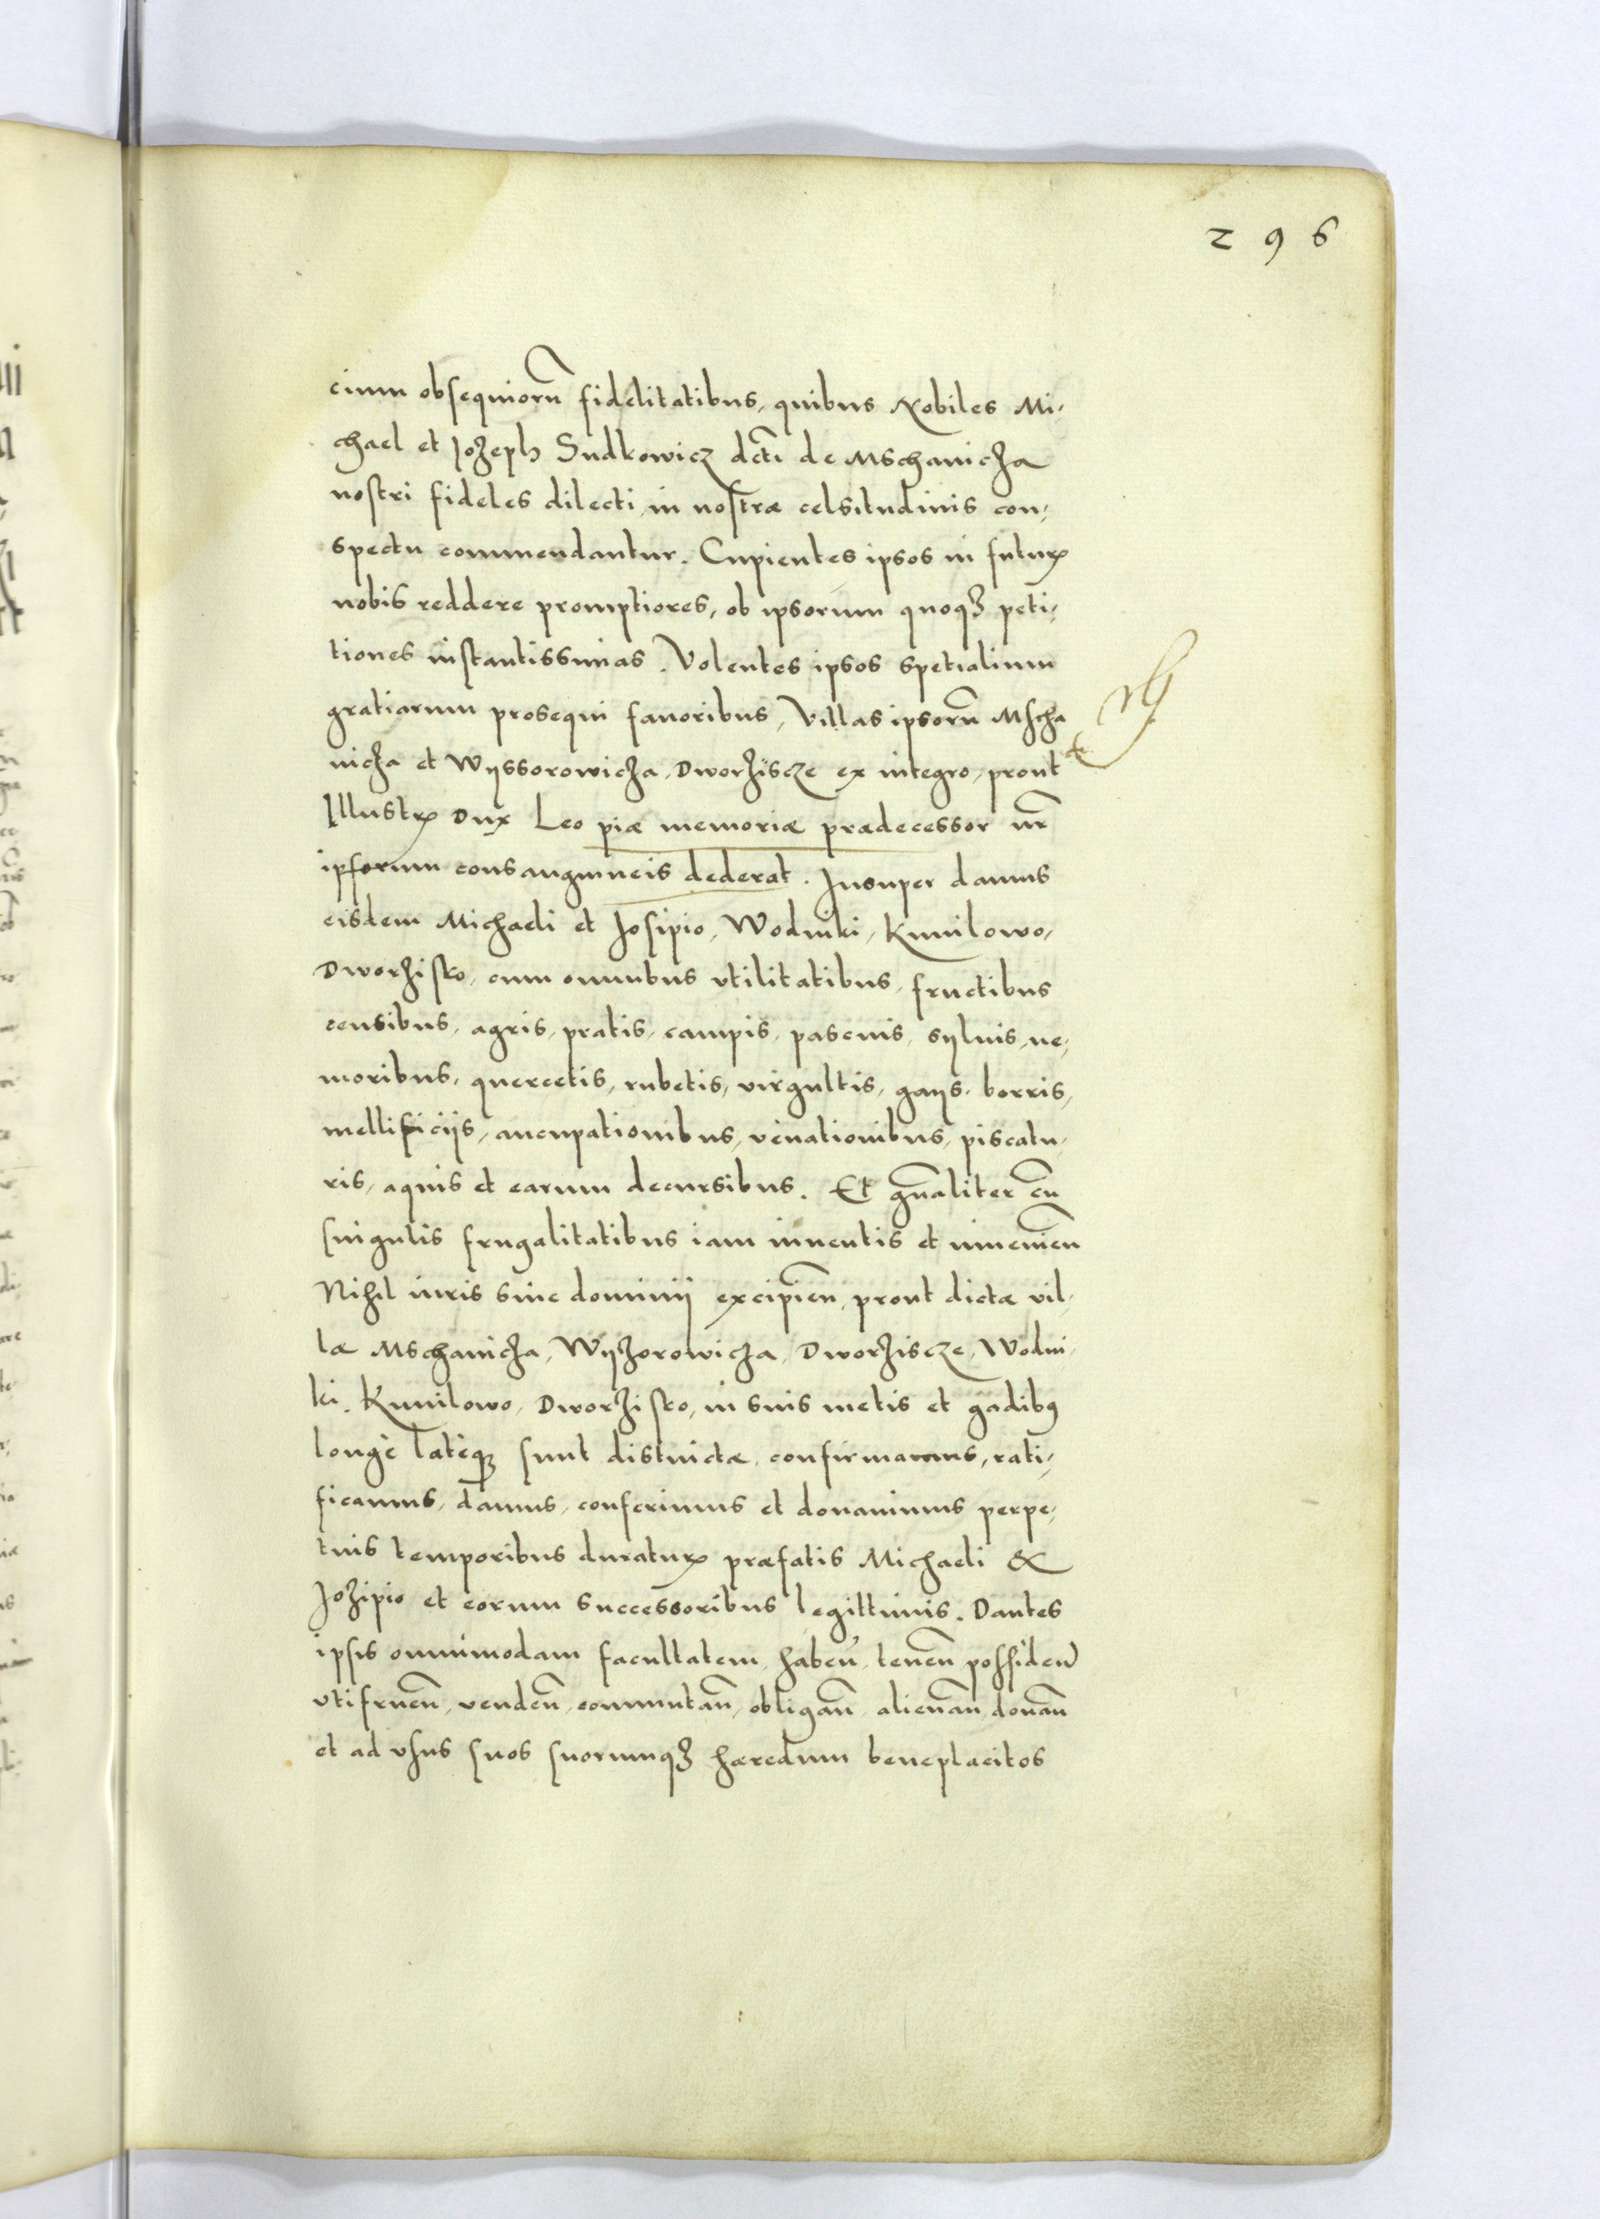 296
cium obsequiorũ fidelitatibus, quibus Nobiles Mi,
chael et Jozeph Sudkowicz dcti de Mschanicza
nostri fideles dilecti in nostræ celsitudinis con,
spectu commendantur. Cupientes ipsos in futurꝝ
nobis reddere promptiores, ob ipsorum quoqꝫ peti,
tiones instantissimas. Volentes ipsos spetialium
gratiarum prosequi fauoribus, Villas ipsorũ Mscha
nicza et Wyssorowicza, Dworziscze ex integro, prout
Illustrꝝ Dux Leo piæ memoriæ prædecessor nr̃
ipsorum consanguineis dederat. Insuper damus
eisdem Michaeli et Josipio, Wodniki, Kunilowo,
Dworzisko, cum omnibus vtilitatibus, fructibus
censibus, agris, pratis, campis, pascuis, syluis, ne,
moribus, quercetis, rubetis, virgultis, gays, borris,
mellificijs, aucupationibus, venationibus, piscatu,
ris, aquis et earum decursibus. Et gñaliter cũ
singulis frugalitatibus iam inuentis et inueniẽn
Nihil iuris siue dominij excipiẽn, prout dictæ vil,
læ Mschanicza, Wyzorowicza, Dworziscze, Wodni,
ki, Kunilowo, Dworzisko, in suis metis et gadibꝯ
longè latèqꝫ sunt distinctæ, confirmamus, rati,
ficamus, damus, conferimus et donauimus perpe,
tuis temporibus duraturꝝ præfatis Michaeli &
Jozipio et eorum successoribus legittimis. Dantes
ipsis omnimodam facultatem, habeñ, teneñ possideñ
vtifrueñ, vendeñ, commutañ, obligañ, alienañ, donañ
et ad vsus suos suorumqꝫ hæredum beneplacitos